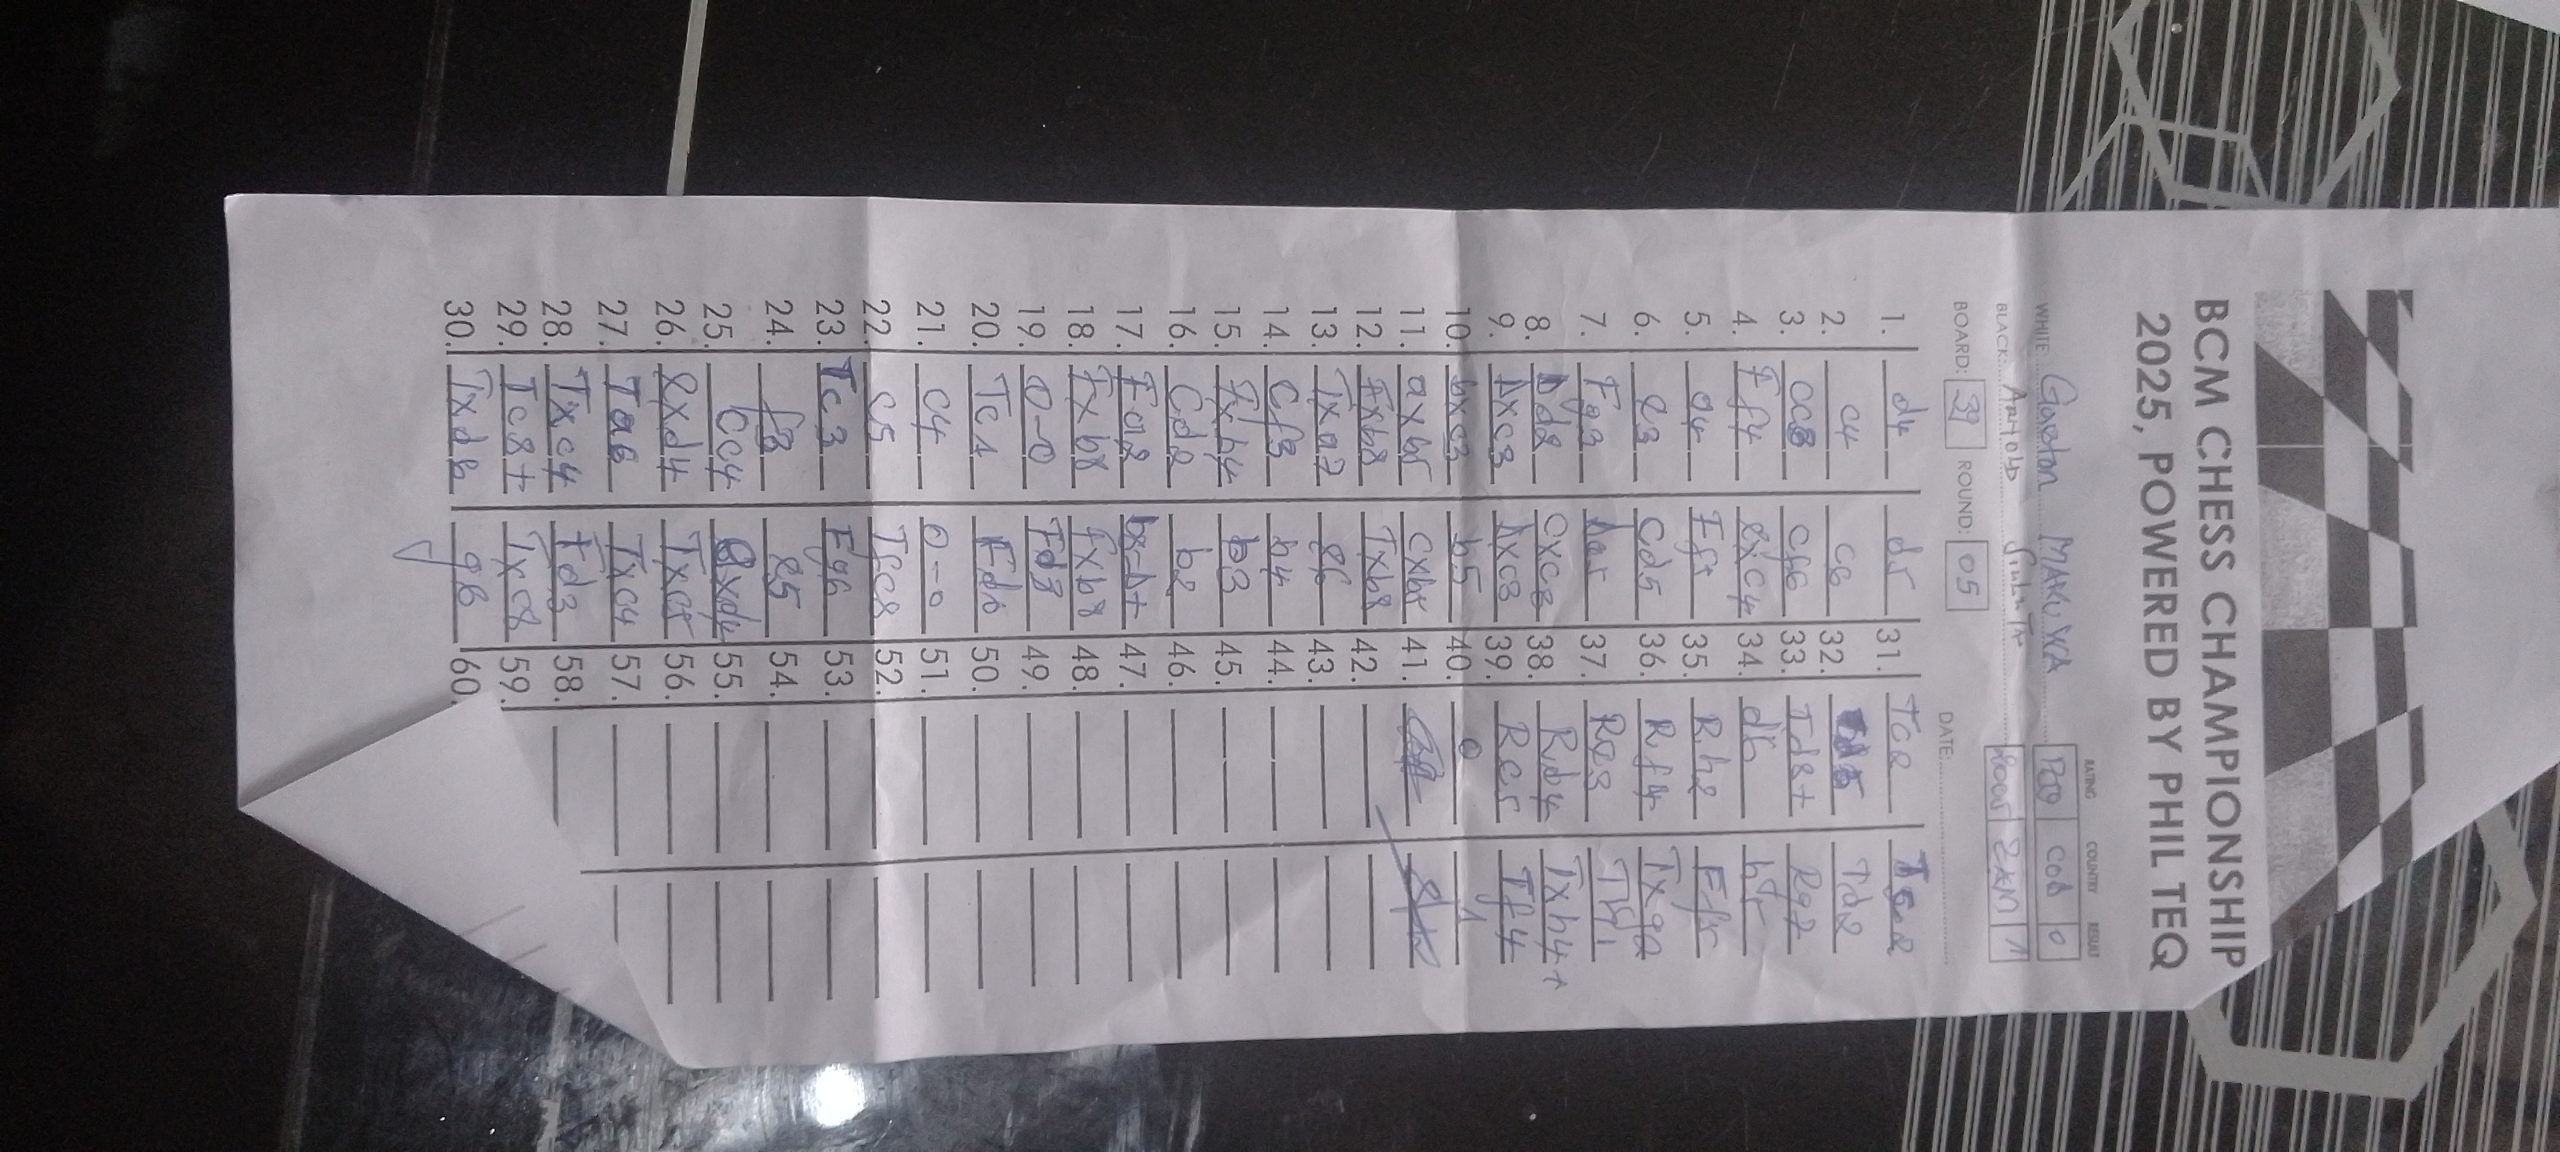 BCM CHESS CHAMPIONSHIP
2025, POWERED BY PHIL TEQ
RATING COUNTRY RESULT
WHITE Gaeton MAKUWA COD 0
BLACK: Arnold ZAM 1
BOARD: 31 ROUND: 05 DATE:
1. d4 d5 31. Ta2
2. c4 c6 32. Td2
3. Cc3 Cf6 33. Td8+ Rg7
4. Ff4 dxc4 34. d6 h5
5. a4 Ff5 35. Rh2 Ff5
6. e3 Cd5 36. Rf4 Txg2
7. Fg3 Da5 37. Re3
8. Dd2 Cxc3 38. Rd4 Txh4+
9. Dxc3 Dxc3 39. Rc5 Tf4
10. bxc3 b5 40. 0 1
11. axb5 cxb5 41.
12. Fxb8 Txb8 42.
13. Txa7 e6 43.
14. Cf3 b4 44.
15. Fxb4 b3 45.
16. Cd2 b2 46.
17. Fa2 47.
18. Fxb8 Fxb8 48.
19. 0-0 Fd3 49.
20. Tc1 50.
21. c4 0-0 51.
22. c5 Tfc8 52.
23. Tc3 Fg6 53.
24. f3 e5 54.
25. Cc4 exd4 55.
26. exd4 Txc5 56.
27. Ta6 Txc4 57.
28. Txc4 Fd3 58.
29. Tc8+ Txc8 59.
30. g6 60.